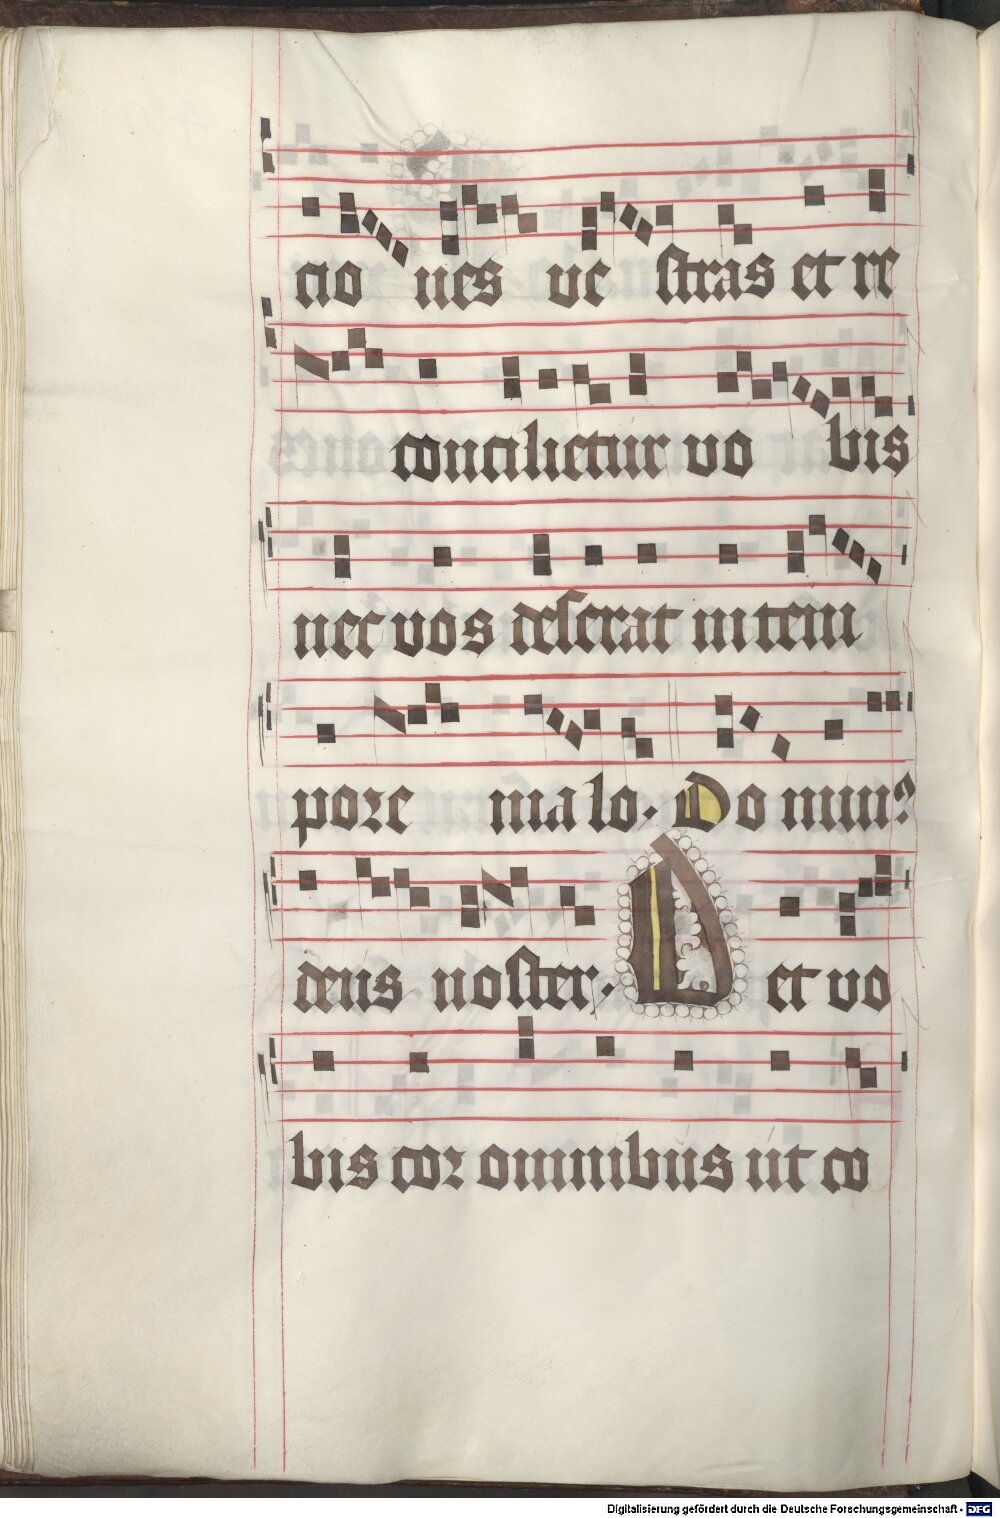 cio nes ve stras et re
concilietur vo bis
nec vos deserat in tem
pore ma lo. Do minꝰ
deus noster. D et vo
bis cor omnibus ut co
Digitalisierung gefördert durch die Deutsche Forschungsgemeinschaft - DFG